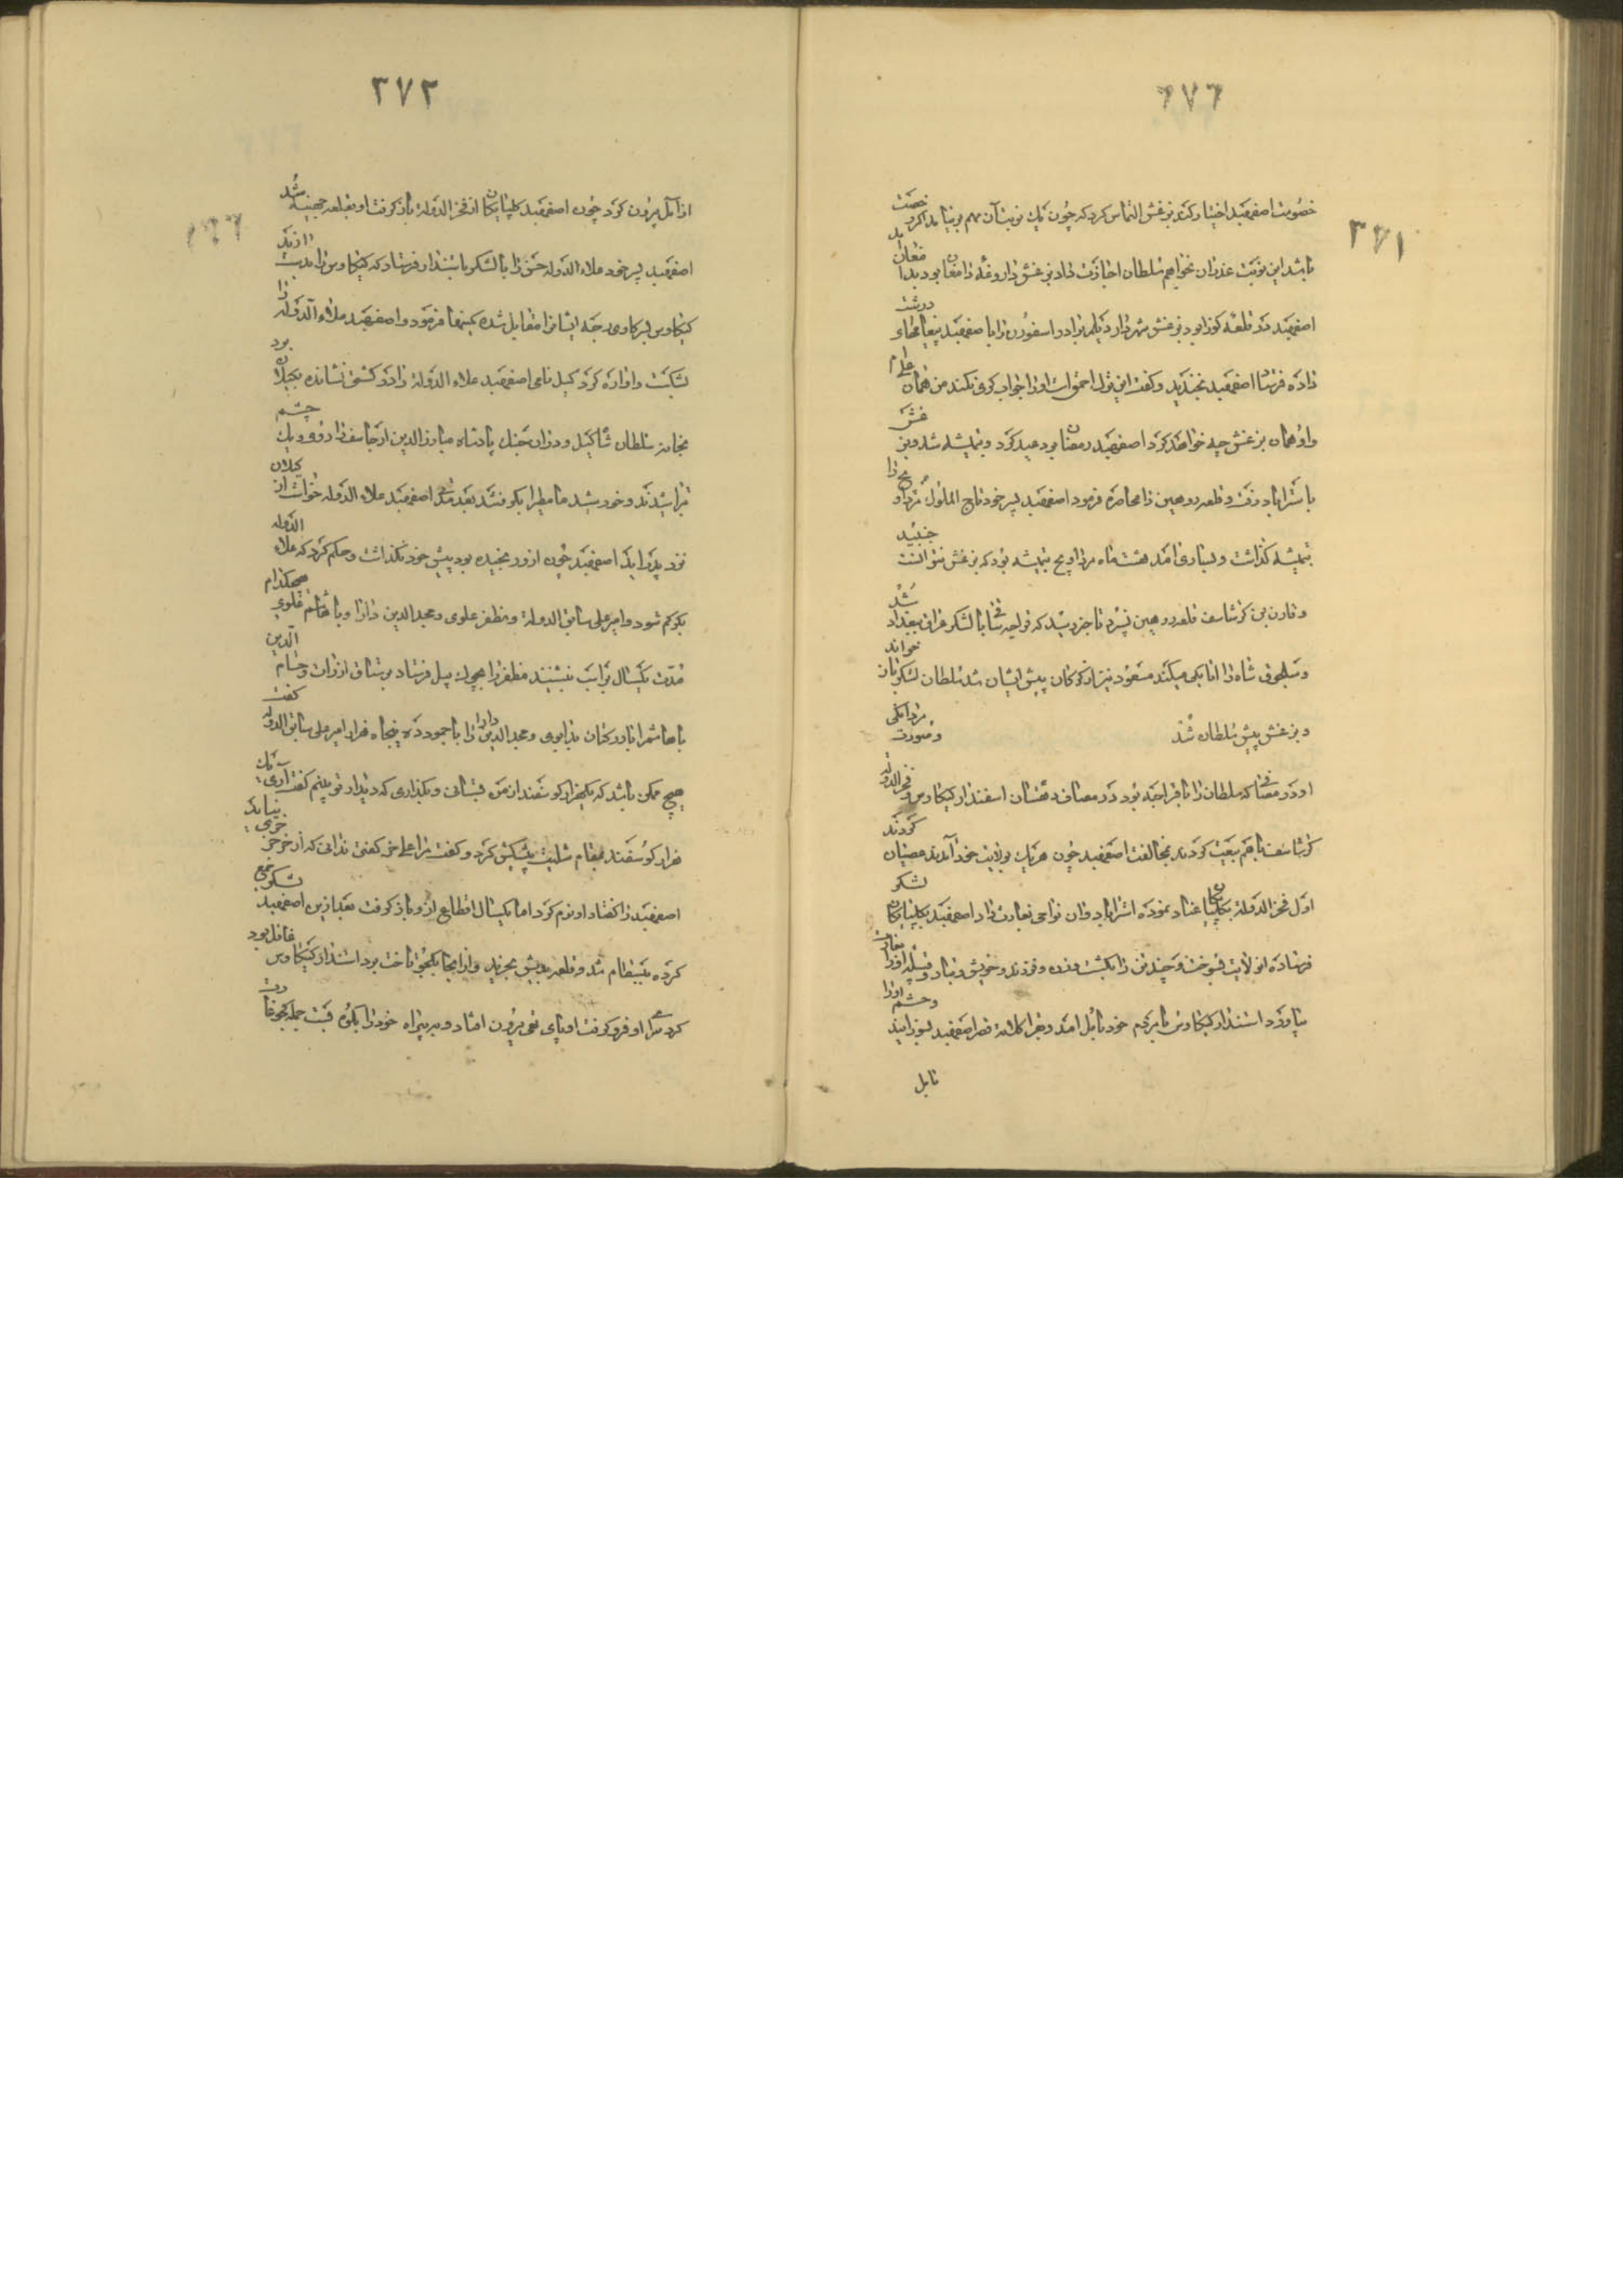 ۳۷۱
خصومت اصفهبد اختیار کند بزغش التماس کرد که چون یک نوبت آن مهم بر نیامد اگر رخصت
باشد این نوبت عذر آن نخواهم سلطان اجازت داد بزغش داروغه دامغان بود بدامغان
اصفهبد در قلعه کوزا بود بزغش شهردار دیلم برادر اسفورن را با اصفهبد پیغامهای درشت
داده فرستاد اصفهبد بخندید و گفت این ترک احمق است او را جواب کری نکند من همان علی ام
و او همان بزغش چه خواهد کرد اصفهبد رمضان بود عید کرد و بتمیشه شد و بزغش
باستراباد رفت و قلعه روهین را محاصره فرمود اصفهبد پسر خود تاج الملوک مرداویج را
بتمیشه گذاشت و بساری آمد هشت ماه مرداویج بتمیشه بود که بزغش نتوانست جنبید
و قارن بن گرشاسف قلعه روهین نسپرد تا خبر رسید که خواجه با لشکر عراق ببغداد شد
و سلجوق شاه را اتابکی میکند مسعود نیز از گرگان پیش ایشان شد سلطان لشکر باز خواند
و بزغش پیش سلطان شد
مردانگی و ضرورت
او در مصافی که سلطان را با قراجه بود در مصاف دهستان اسفندار کیکاوس و فخرالدوله
گرشاسف باهم بیعت کردند بمخالفت اصفهبد چون هر یک بولایت خود آمدند عصیان کردند
اول فخرالدوله بگلپایگان عناد نموده استراباد و آن نواحی بغارت داد اصفهبد بگلپایگان لشکر
فرستاده از ولایت بسوخت و چند تن را بکشت و زن و فرزند و خویش و تبار و قبیله او را بغارت
بیاورد استندار کیکاوس با مردم خود بآمل آمد و بخراکلاته قصر اصفهبد بسوزانید و حشم او را
بآمل
۳۷۲
از آمل بیرون کرد چون اصفهبد گلپایگان از فخرالدوله باز گرفت او بقلعه جهینه شد
اصفهبد پسر خود علاء الدوله حسن را با لشکر باستندار فرستاد که کیکاوس را بدست آرند
کیکاوس بسر کاوی رجه ایشانرا مقابل شده کمینها فرمود و اصفهبد علاء الدوله را
بشکست و آواره کرد گیل نامی اصفهبد علاء الدوله را در کشتی نشانده بگیلان بود
بخانه سلطان شاه گیل و در آن جنگ پادشاه مبارزالدین ارجاسف را رو و یک چشم
تراشیدند و خورشید مامطیرا بگرفتند بعد مدتی اصفهبد علاء الدوله خواست از گیلان
نزد پدر آید اصفهبد چون ازو رنجیده بود پیش خود نگذاشت و حکم کرد که علاء الدوله
بکرکم شود و امیر علی سابق الدوله و مظفر علوی و مجدالدین دارا و باهاشم علوی هیچکدام
مدت یکسال برابت ننشینند مظفر را بپل فرستاد بر سنان از ذات و حسام الدین
باهاشم را باور بخان بدابوی و مجدالدین دارا را باحمود ده پنجاه هزار امیر علی سابق الدوله گفت
هیچ ممکن باشد که یکهزار گوسفند از من بستانی و بگذاری که دیدار تو بینم گفت آری یک
هزار گوسفند بمقام شلیت پیشکش کرد و گفت مرا علی خر گفتی ندانی که از خر جز خری نیاید
اصفهبد را گفتار او نرم کرد اما یکسال اقطاع ازو باز گرفت بعد ازین اصفهبد لشکر جمع
کرده ببسطام شد و قلعه بدیش بخرید و از آنجا بکجو تاخت برد استندار کیکاوس غافل بود
گرد سرای او فرو گرفت او پای تهی بیرون افتاد و بیراه خود را بکوه بست جمله کجو غارت